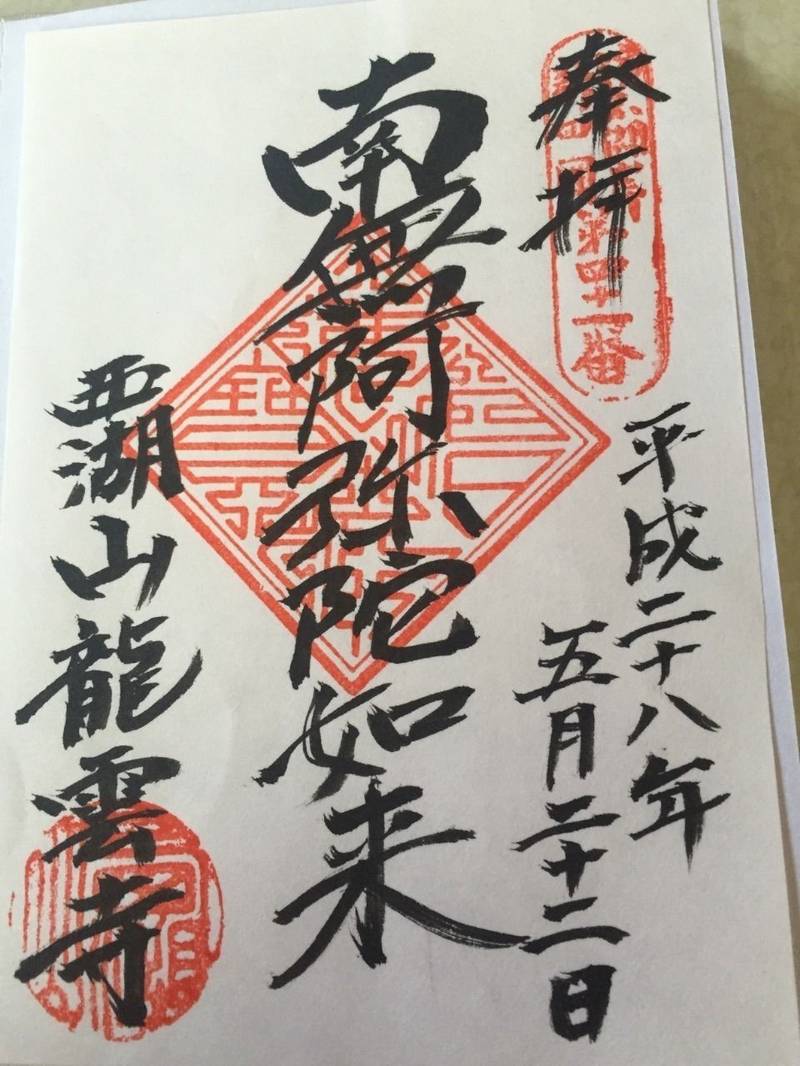 奉拝
四十一番
平成二十八年
五月二十二日
南無阿弥陀如来
西湖山龍雲寺